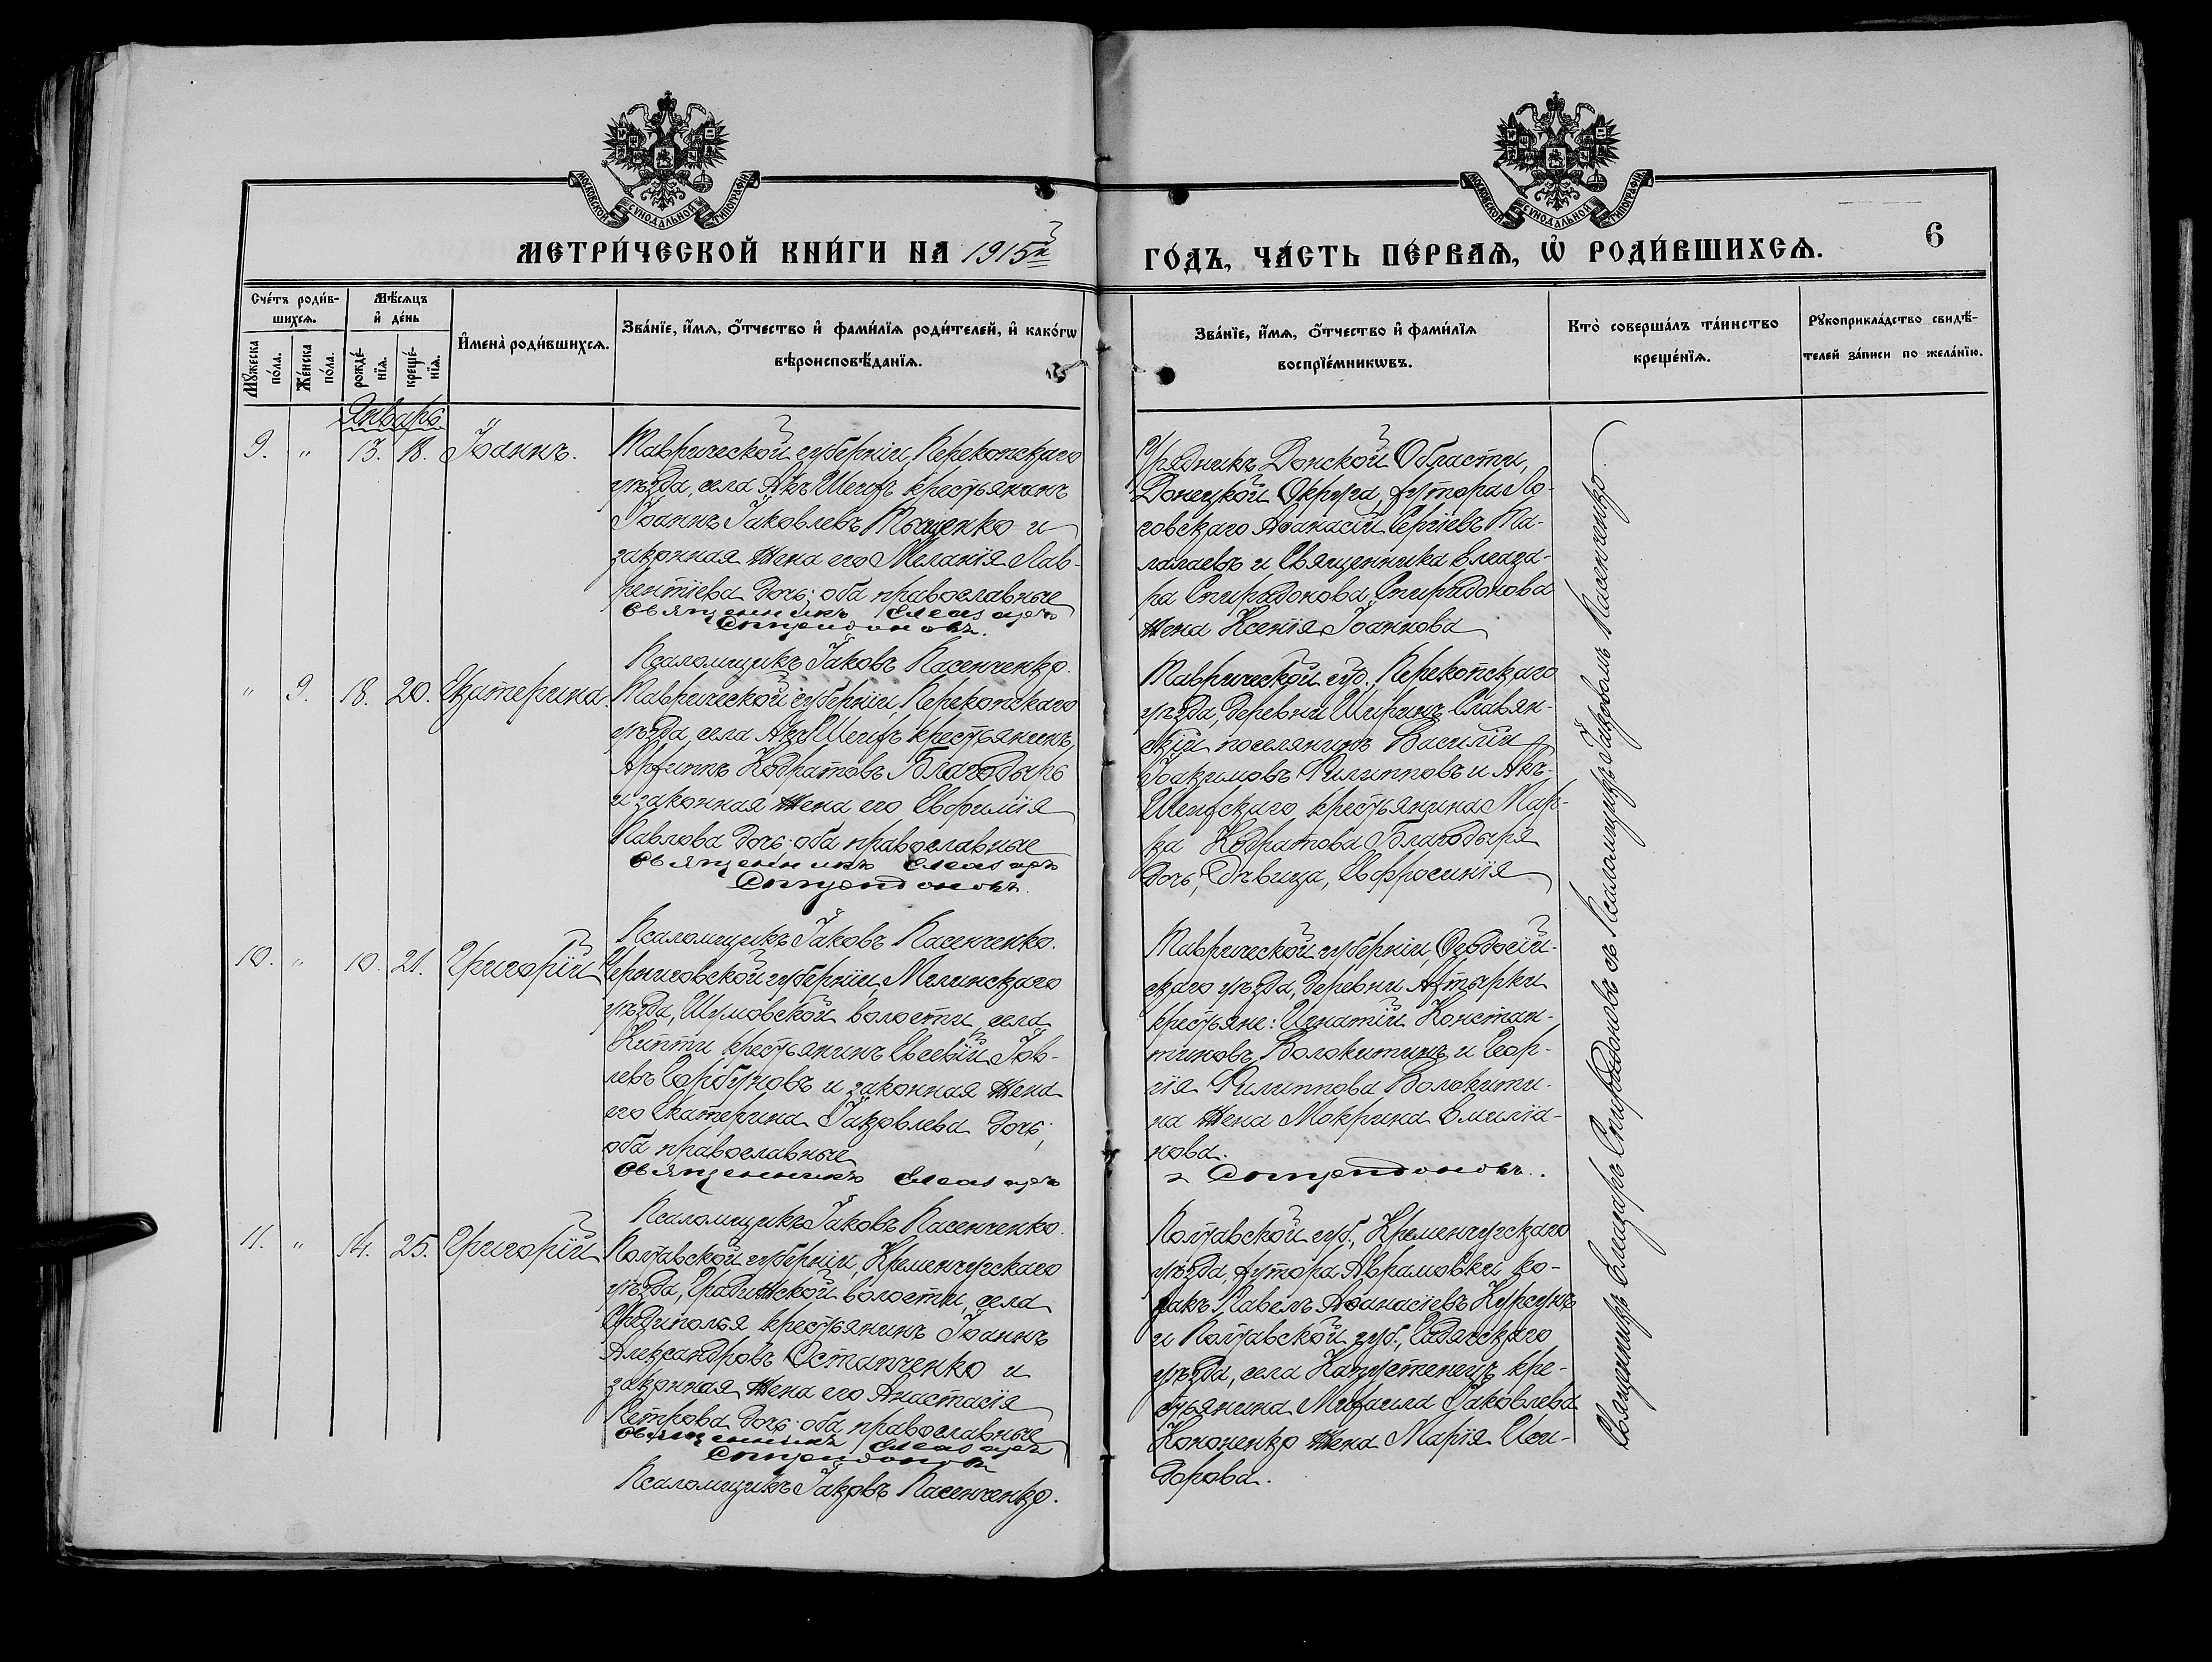 МОСКОВСКОЙ СУНОДАЛЬНОЙ ТИПОГРАФІИ
МОСКОВСКОЙ СУНОДАЛЬНОЙ ТИПОГРАФІИ
МЕТРИ́ЧЕСКОЙ КНИ́ГИ НА 1915й
ГО́ДЪ, ЧА́СТЬ ПЕ́РВАѦ, Ѡ РОДИ́ВШИХСѦ.
6
Сче́тъ роди́в-
шихсѧ.
Мꙋжеска
по́ла.
Же́нска
по́ла.
Мѣ́сѧцъ
и҆ де́нь
рожде́-
нїѧ.
креще́-
нїѧ.
И҆мена̀ роди́вшихсѧ.
Зва́нїе, и҆́мѧ, ѻ҆́тчество и҆ фами́лїѧ роди́телей, и҆ како́гѡ
вѣроисповѣ́данїѧ.
Зва́нїе, и҆́мѧ, ѻ҆́тчество и҆ фами́лїѧ
воспрїе́мникѡвъ.
Кто̀ соверша́лъ та́инство
креще́нїѧ.
Рꙋкоприкла́дство свидѣ́-
телей за́писи по жела́нїю.
Январь
9. " 13. 18. Іоаннъ.
Таврической губерніи, Перекопскаго
уѣзда, села Акъ Шеихъ крестьянинъ
Іоаннъ Іаковлевъ Тищенко и
законная жена его Меланія Лав-
рентіева дочь; оба православные
Священникъ Елеазаръ
Спиридоновъ.
Псаломщикъ Іаковъ Пасенченко.
Урядникъ Донской Области,
Донецкой Округа, хутора Ло-
говскаго Аѳанасій Сергіевъ
и Священника Елеаза-
ра Спиридонова Спиридонова
жена Ксенія Іоаннова
" 9. 18. 20. Екатерина
Таврической губерніи, Перекопскаго
уѣзда, села Акъ Шеихъ крестьянинъ
Архипъ Кодратовъ Благодырь
и законная жена его Евфимія
Павлова дочь; оба православные
Священникъ Елеазаръ
Спиридоновъ.
Псаломщикъ Іаковъ Пасенченко.
Таврической губ., Перекопскаго
уѣзда, деревни Ширинъ Славян-
скій поселянинъ Василій
Іоакимовъ Филипповъ и Акъ-
Шеихскаго крестьянина Мар-
ка Кодратова Благодыря
дочь, дѣвица, Евфросинія
10. " 10. 21. Григорій
Черниговской губерніи, Мглинскаго
уѣзда, Шумовской волости, села
Кипти крестьянинъ Евсевій Іов-
левъ Горбуновъ и законная жена
его Екатерина Іаковлева дочь;
оба православные
Священникъ Елеазаръ
Спиридоновъ.
Псаломщикъ Іаковъ Пасенченко.
Таврической губерніи, Ѳеодосій-
скаго уѣзда, деревни Ахтырки
крестьяне: Игнатій Констан-
тиновъ Волокитинъ и Геор-
гія Филиппова Волокити-
на жена Мокрина Емиліа-
нова.
11. " 14. 25. Григорій
Полтавской губерніи, Кременчугскаго
уѣзда, Градижской волости, села
крестьянинъ Іоаннъ
Александровъ Остапченко и
законная жена его Анастасія
Петрова дочь; оба православные
Священникъ Елеазаръ
Спиридоновъ
Псаломщикъ Іаковъ Пасенченко.
Полтавской губ., Кременчугскаго
уѣзда, хутора Аврамовки ко-
закъ Павелъ Аѳанасіевъ Курсунъ
и Полтавской губ., Гадячскаго
уѣзда, села Капустенецъ кре-
стьянина Михаила Іаковлева
Кононенко жена Марія Иси-
дорова.
Священникъ Елеазаръ Спиридоновъ съ Псаломщикомъ Іаковомъ Пасенченко